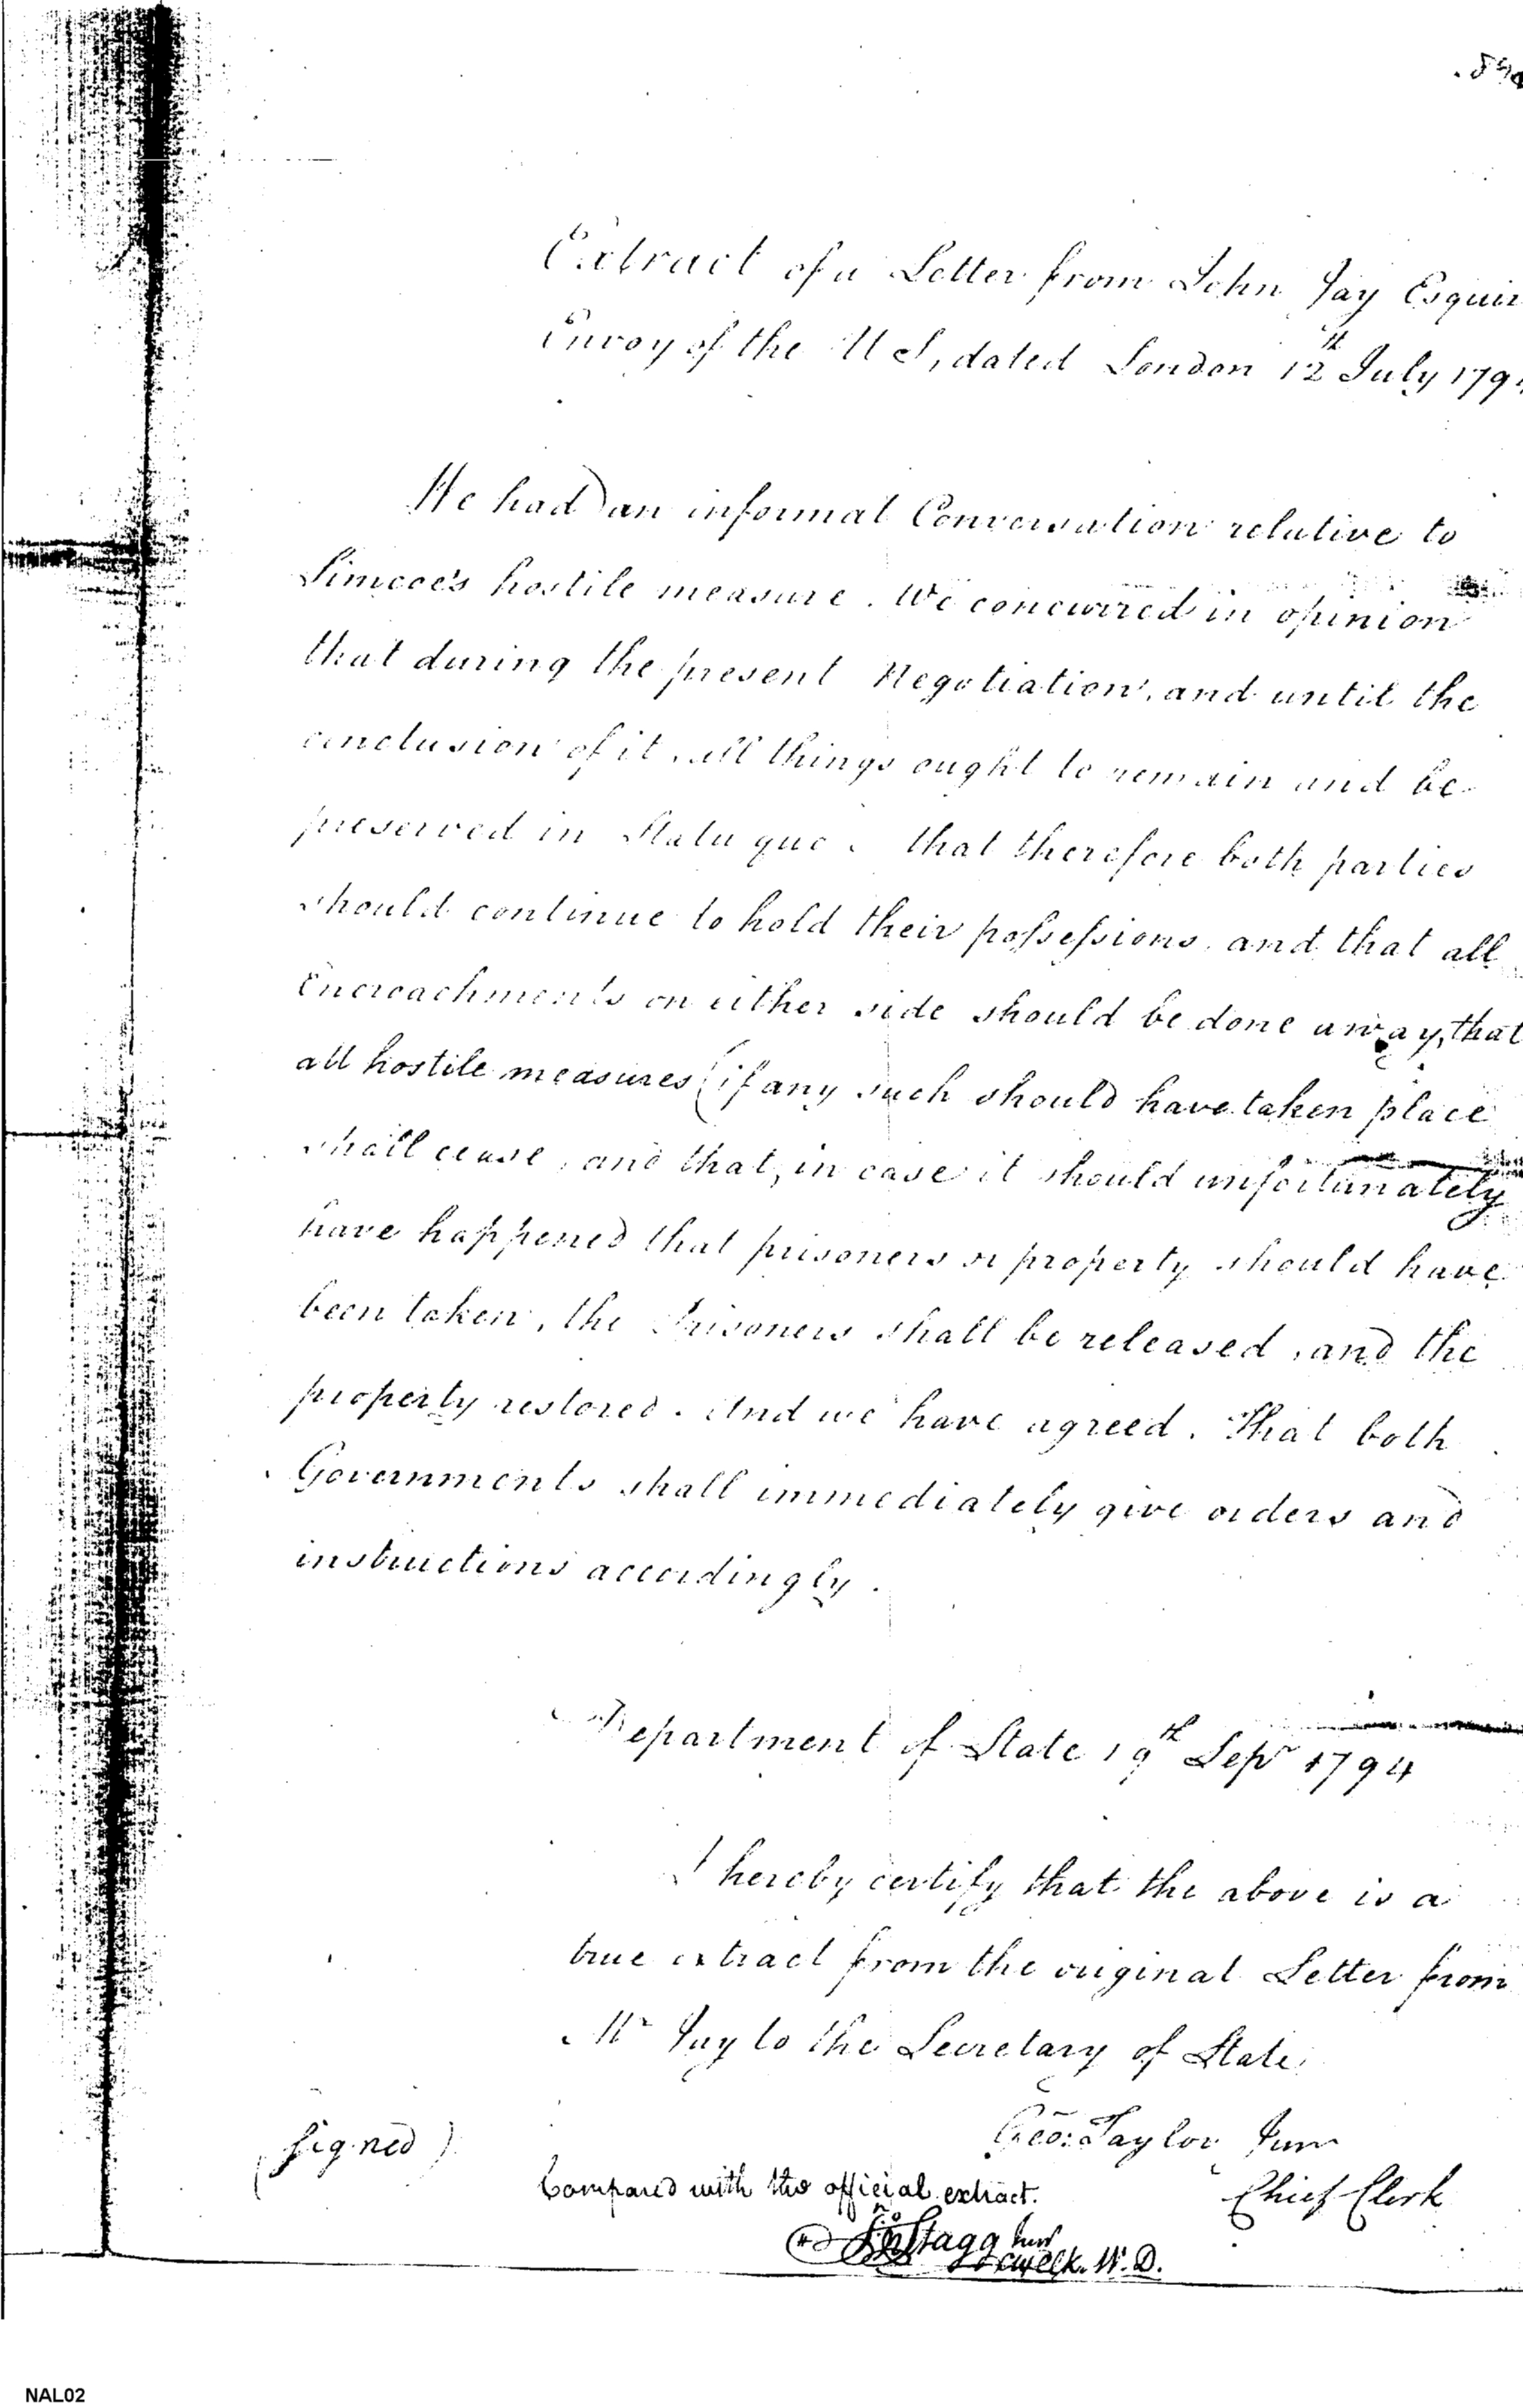 Extract of a Letter from John Jay Esquir
Envoy of the U S, dated London 12th July 179
We had an informal Conversation relative to
Simcoe's hostile measure. We concurred in opinion
that during the present Negotiation, and until the
conclusion of it, all things ought to remain and be
preserved in Statu quo. that therefore both parties
should continue to hold their possessions, and that all
Encroachments on either side should be done away, that
all hostile measures (if any such should have taken place
shall cease, and that, in case it should unfortunately
have happened that prisoners or property should have
been taken, the Prisoners shall be released, and the
property restored. And we have agreed. That both
Governments shall immediately give orders and
instructions accordingly.
Department of State 19th Sepr 1794
I hereby certify that the above is a
true extract from the original Letter from
Mr Jay to the Secretary of State,
(signed)
Geo: Taylor Junr
Chief Clerk
Compared with the official extract.
Jno Stagg Junr
Clk. W. D.
NAL02